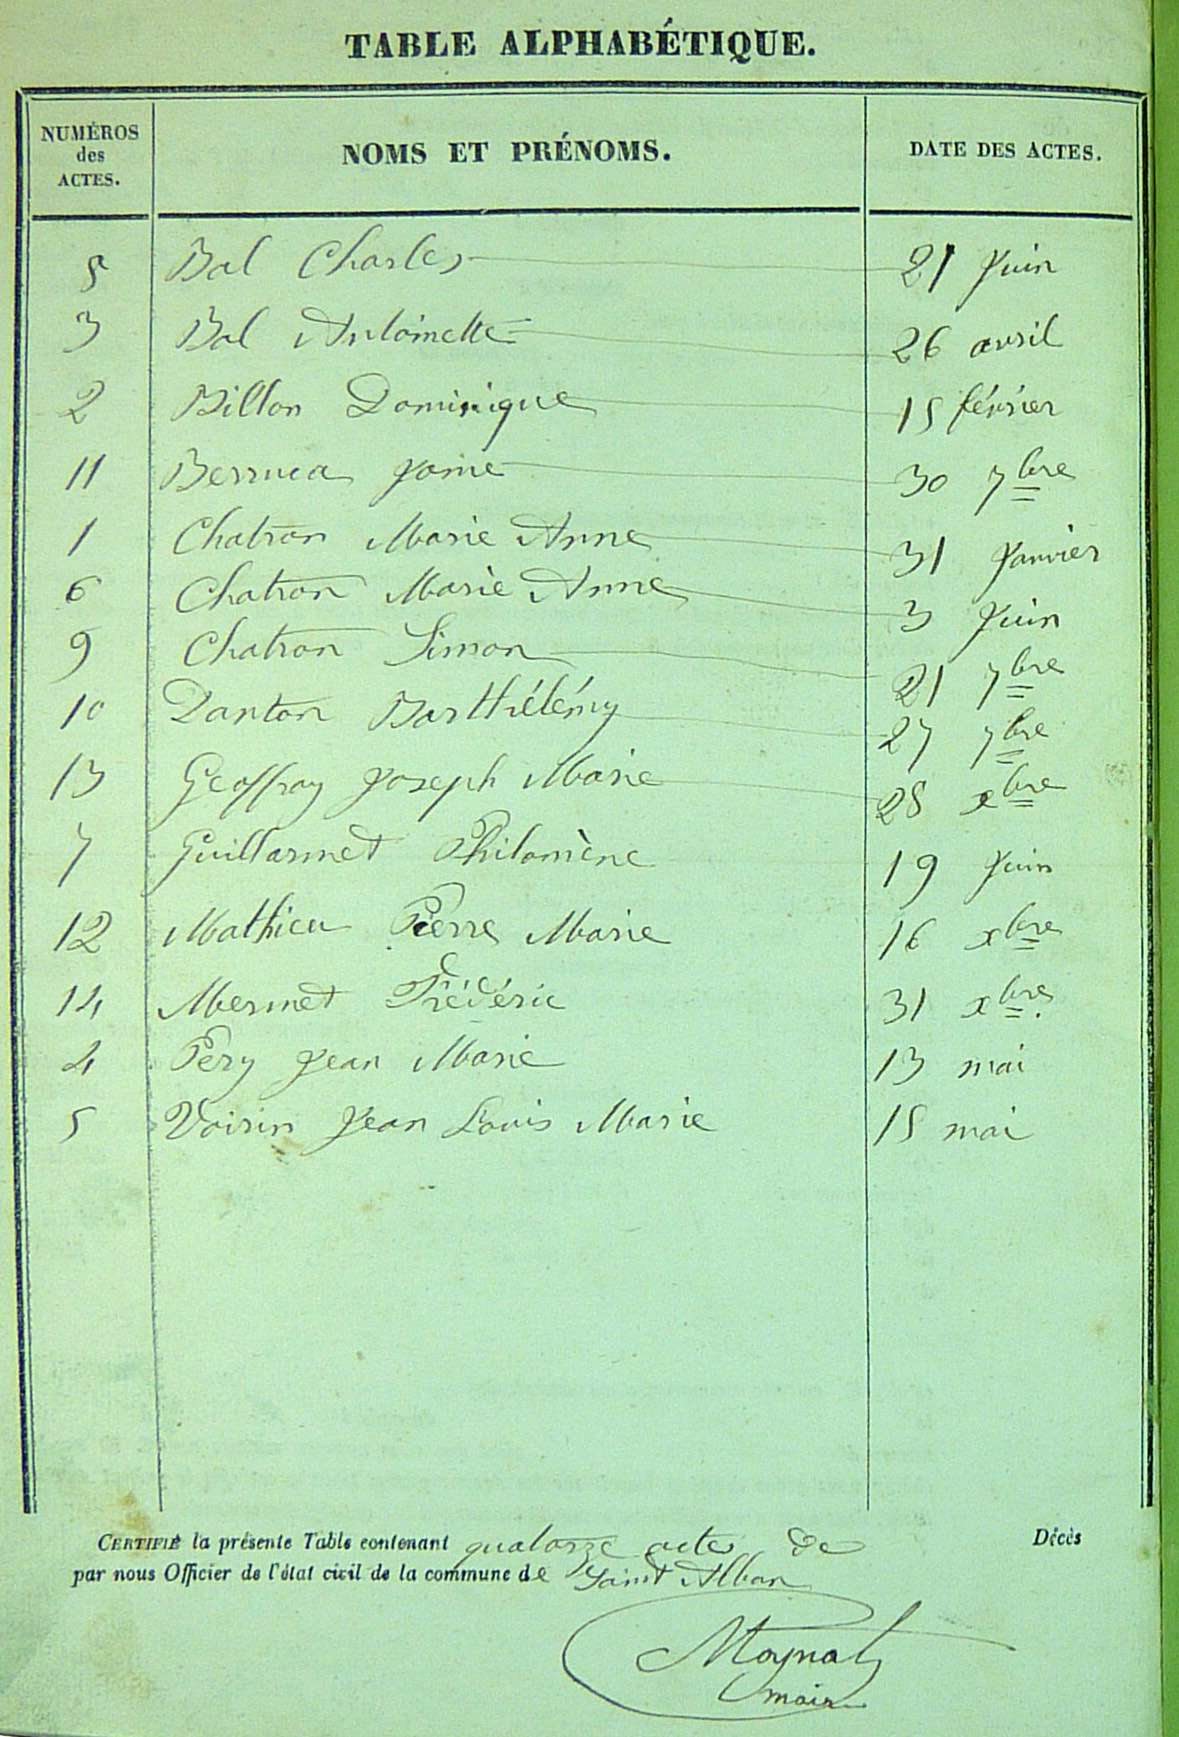 TABLE ALPHABÉTIQUE.
NUMÉROS des ACTES. NOMS ET PRÉNOMS. DATE DES ACTES.
8 Bal Charles 21 Juin
3 Bal Antoinette 26 avril
2 Billon Dominique 15 février
11 Berruca Jame 30 7bre
1 Chatron Marie Anne 31 Janvier
6 Chatron Marie Anne 3 Juin
9 Chatron Simon 21 7bre
10 Danton Barthélémy 27 7bre
13 Geoffray Joseph Marie 28 xbre
7 Guillarmet Philomène 19 Juin
12 Mathieu Pierre Marie 16 xbre
14 Mermet Frédéric 31 xbre.
4 Pery Jean Marie 13 mai
5 Voirin Jean Louis Marie 15 mai
CERTIFIÉ la présente Table contenant quatorze actes de Décès
par nous Officier de l'état civil de la commune de Saint Alban
maire